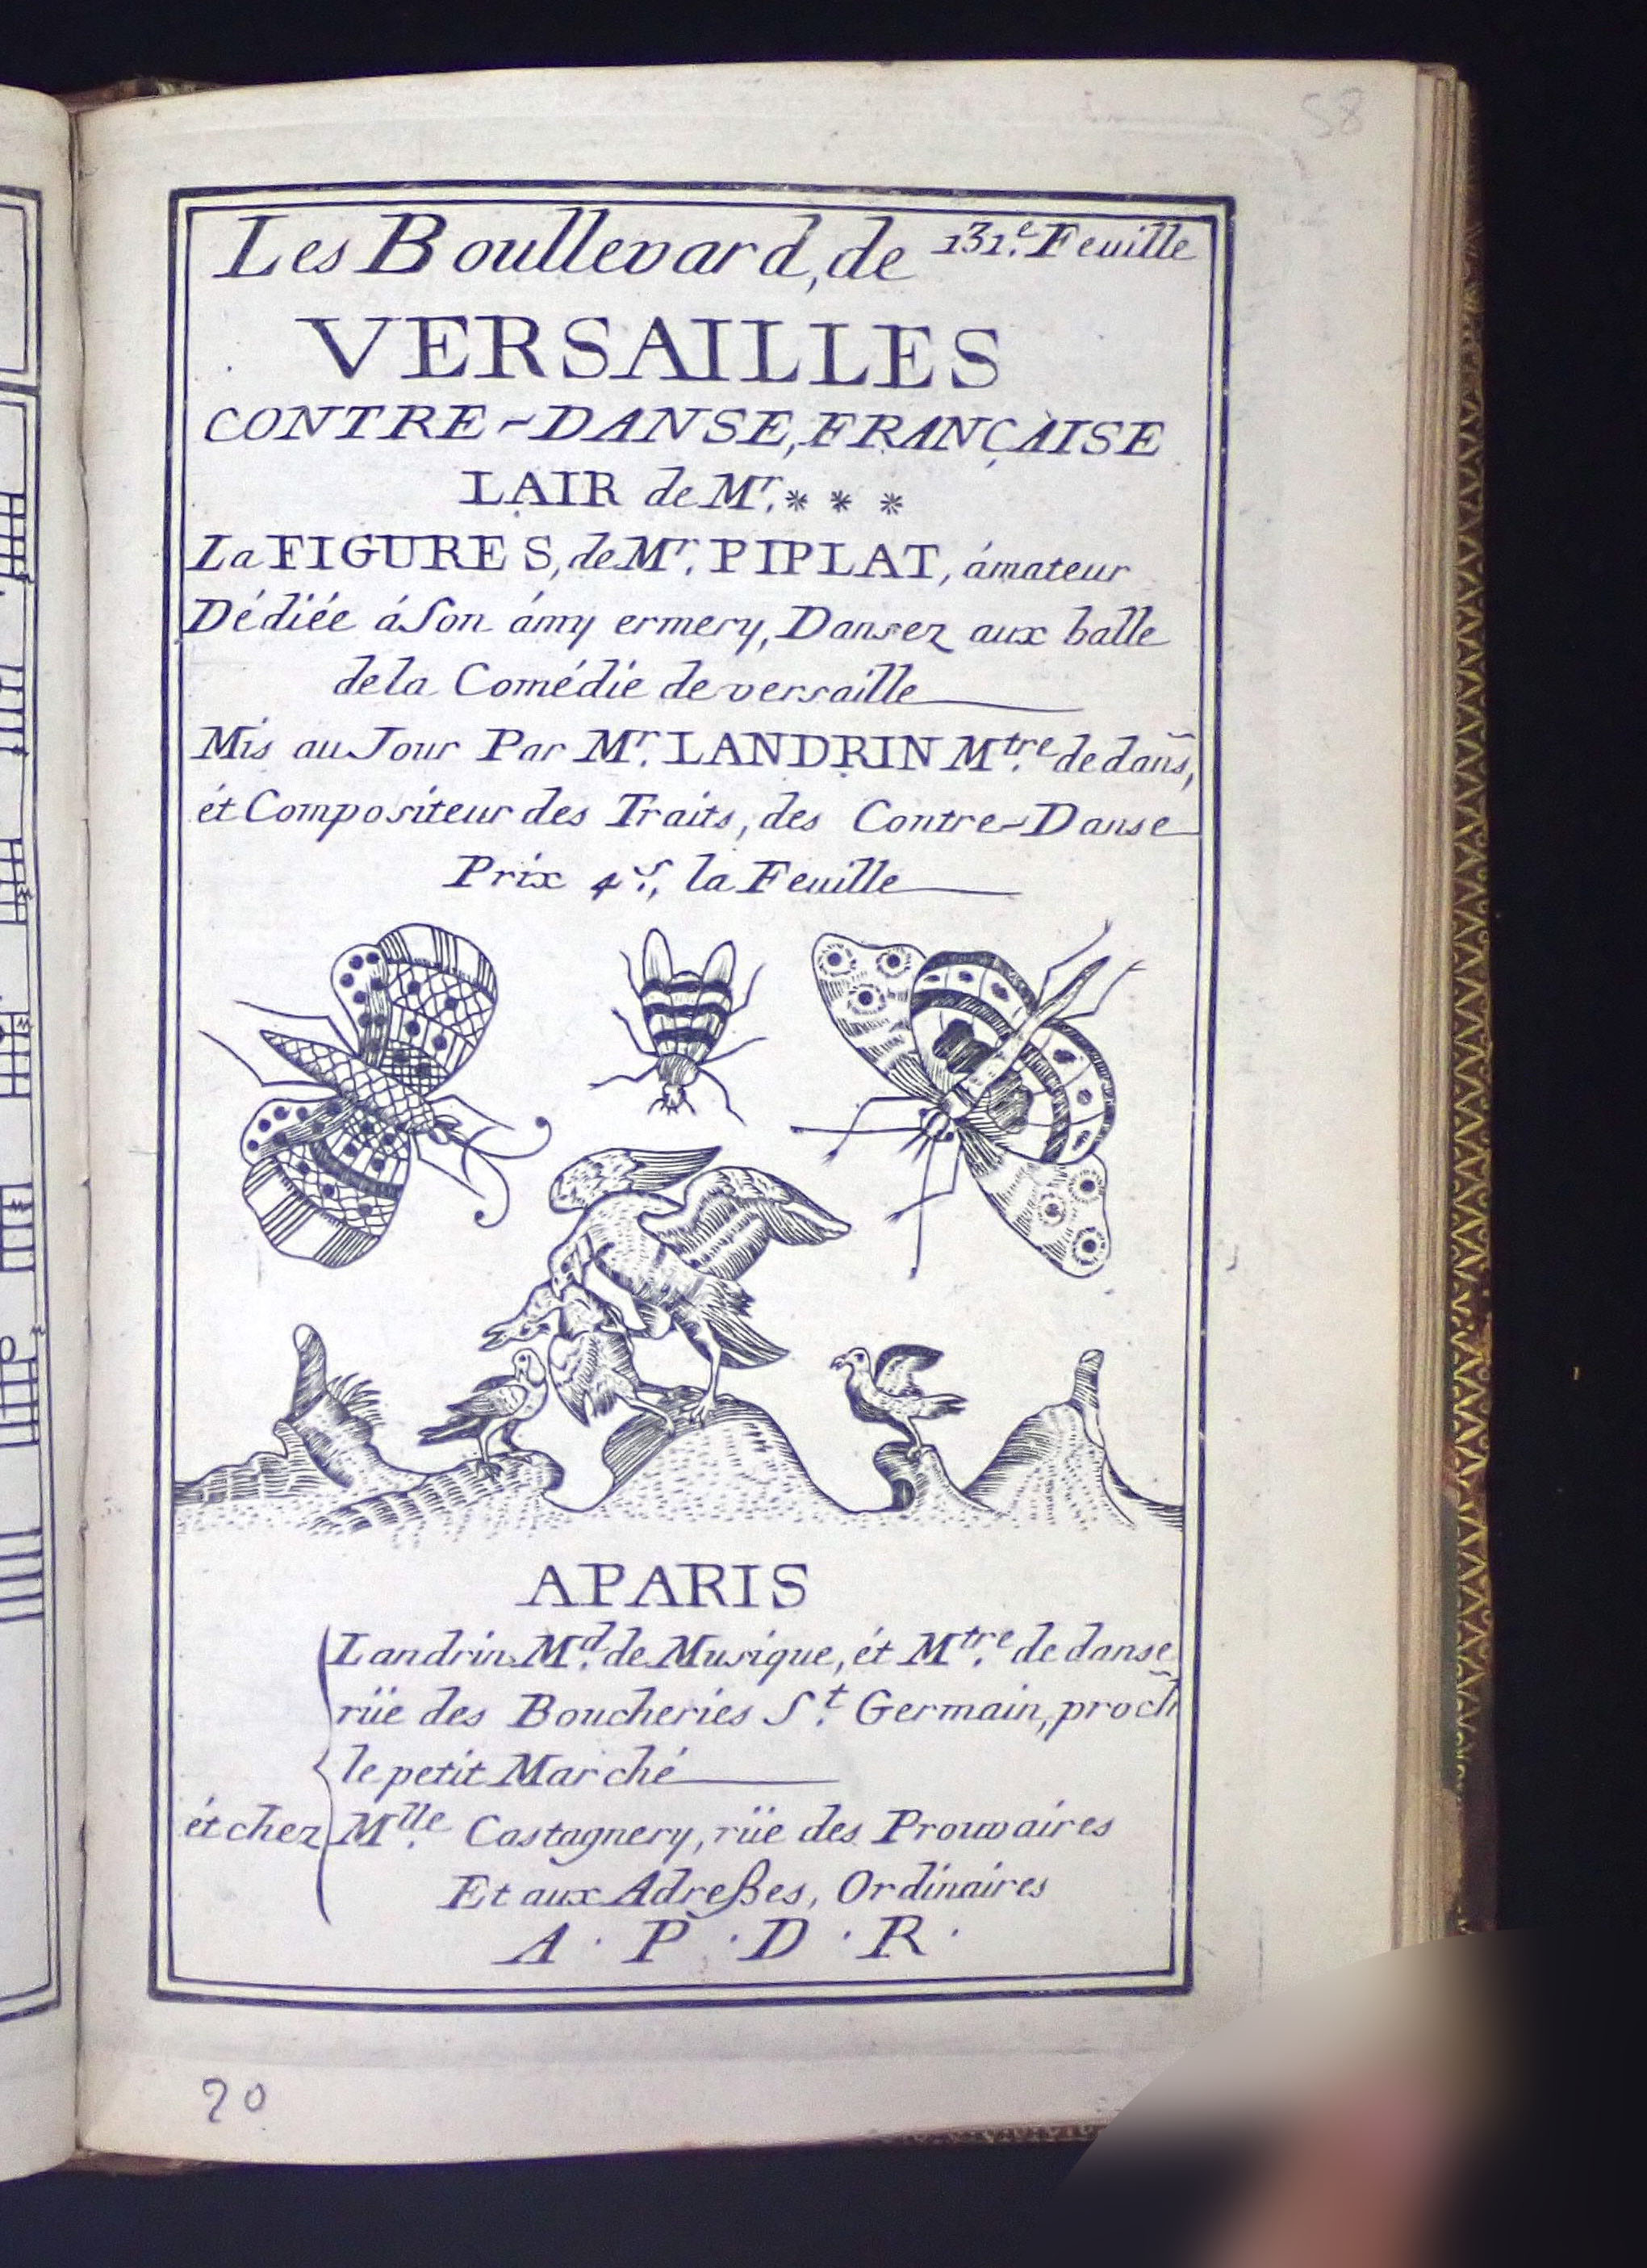 58
Les Boullevard, de 131.e Feuille
VERSAILLES
CONTRE-DANSE, FRANÇAISE
LAIR de Mr. * * *
La FIGURES, de Mr. PIPLAT, ámateur
Dédiée á Son ámy ermery, Dansez aux balle
de la Comédie de versaille
Mis au Jour Par Mr. LANDRIN Mtre. de dans̃,
ét Compositeur des Traits, des Contre-Danse
Prix 4 s., la Feuille
APARIS
Landrin Md. de Musique, ét Mtre. de danse
rüe des Boucheries St. Germain, proch̃
le petit Marché
ét chez Mlle. Castagnery, rüe des Prouvaires
Et aux Adreßes, Ordinaires
A · P · D · R ·